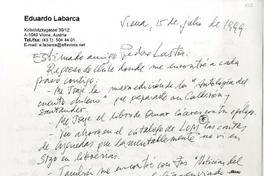 Eduardo Labarca
Viena, 15 de julio de 1999
Kolschitzkygasse 30/12
A-1040 Viena, Austria
Tel./fax: (43 1) 504 44 01
E-mail: e.labarca@altavista.net
Estimado amigo Pedro Lastra:
Regreso de Chile donde me encontré a cada
paso contigo:
- Me traje la reedición de la "Antología del
cuento chileno" que preparaste con Calderón y
Santander.
- Me traje el libro de Omar Cáceres con tu epílogo.
- Veo ahora en el catálogo de LOM las cartas
de Arguedas que lamentablemente no vi en
Stgo en librerías.
- También me encontré con tus "Noticias del